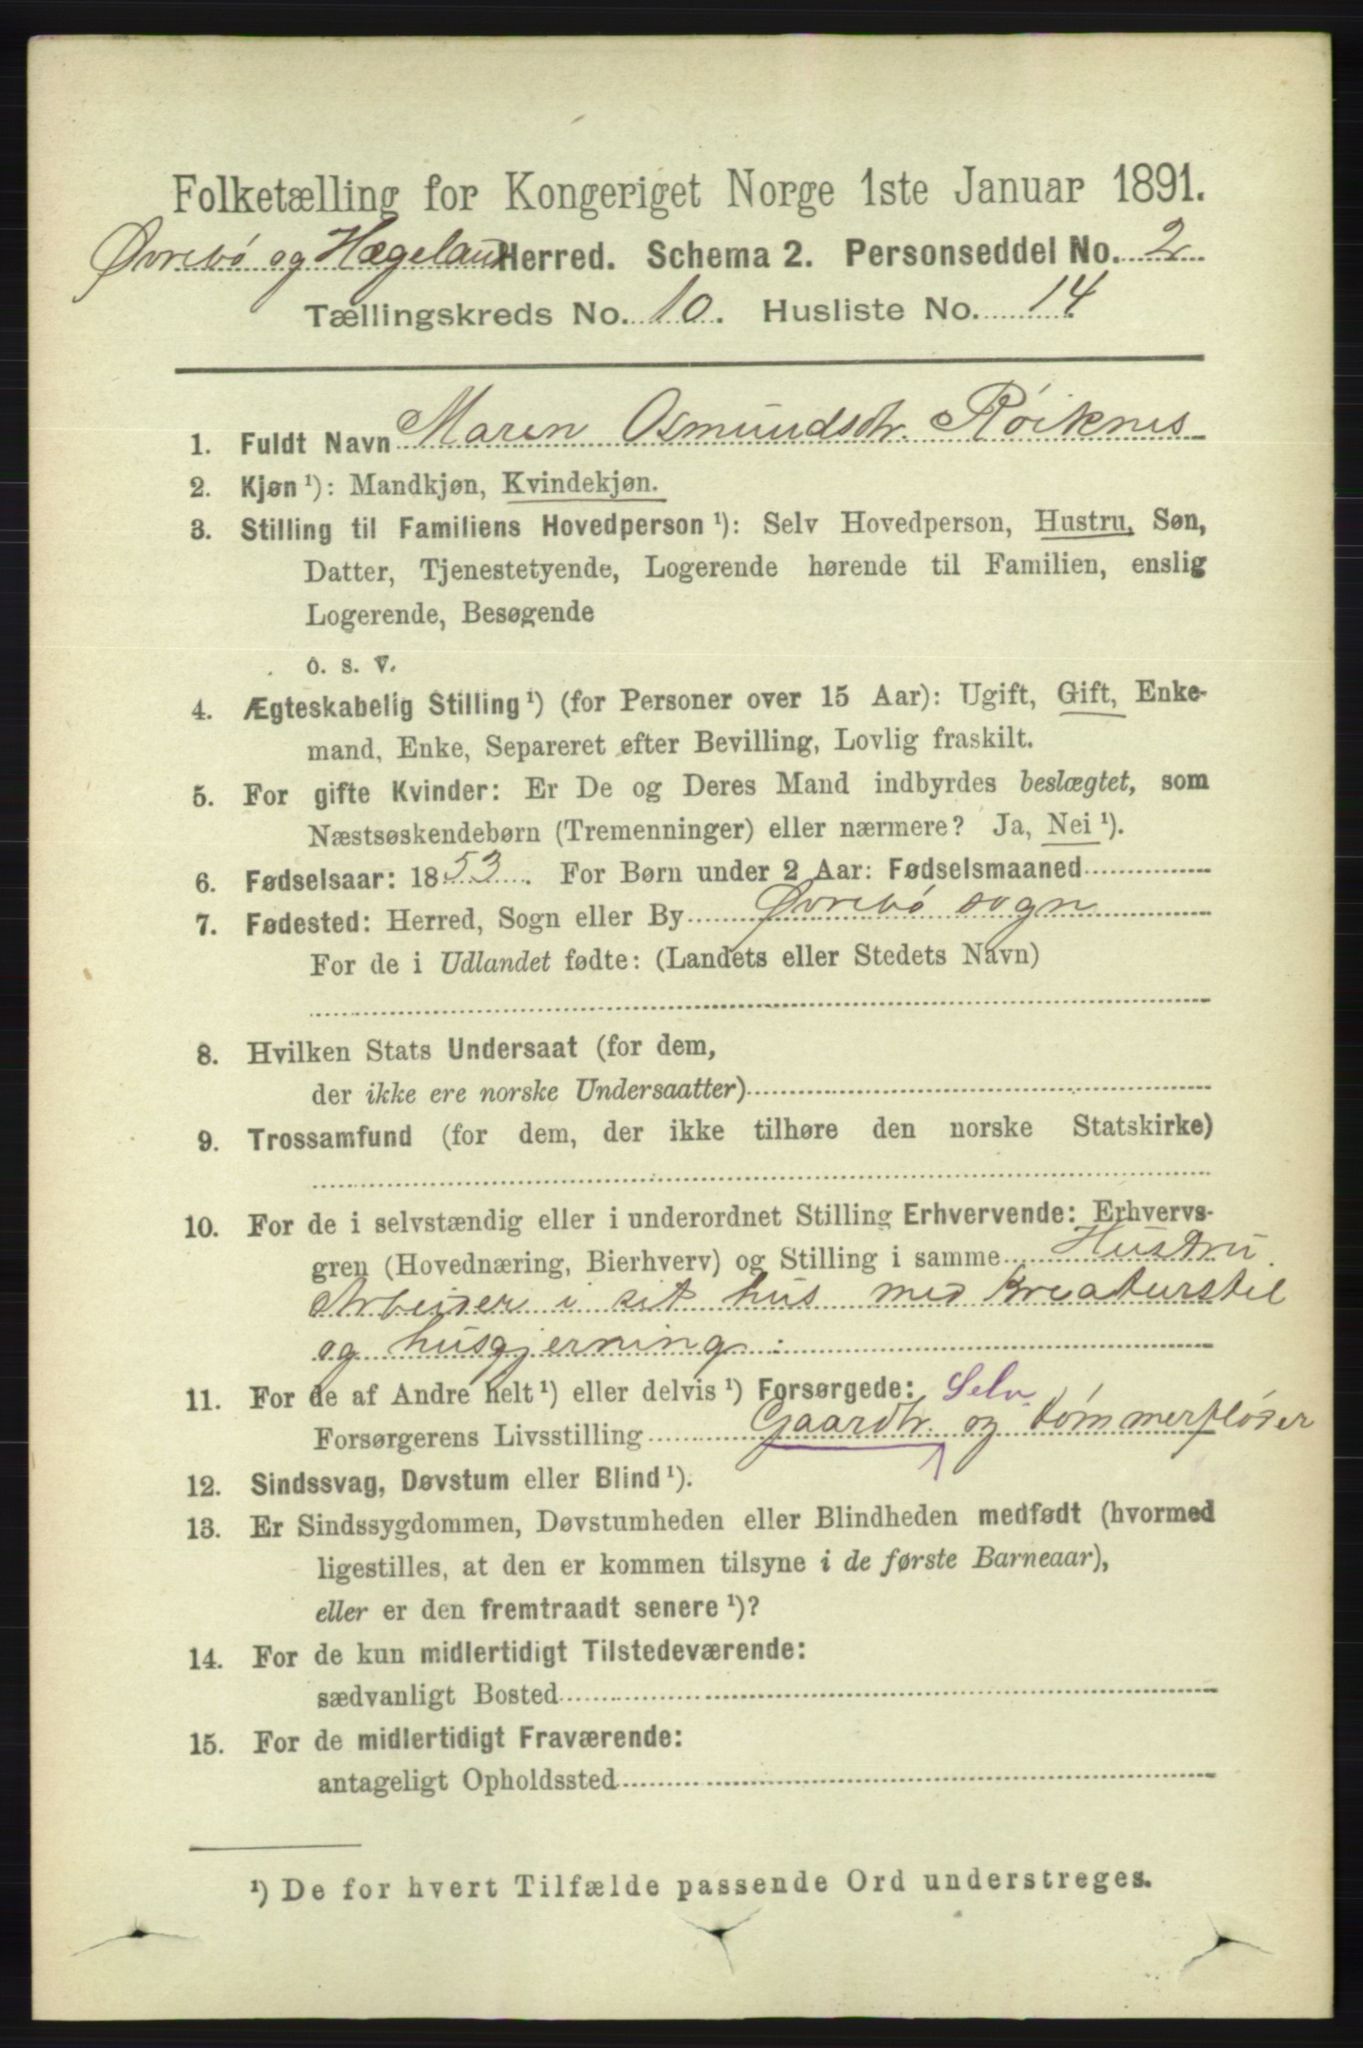 Folketælling for Kongeriget Norge 1ste Januar 1891.
Øvrebö og Hægeland Herred. Schema 2. Personseddel No. 2
Tællingskreds No. 10. Husliste No. 14
1. Fuldt Navn Maren Osmundsdtr. Röiknes
2. Kjøn ¹): Mandkjøn, Kvindekjøn.
3. Stilling til Familiens Hovedperson ¹): Selv Hovedperson, Hustru, Søn,
Datter, Tjenestetyende, Logerende hørende til Familien, enslig
Logerende, Besøgende
o. s. v.
4. Ægteskabelig Stilling ¹) (for Personer over 15 Aar): Ugift, Gift, Enke-
mand, Enke, Separeret efter Bevilling, Lovlig fraskilt.
5. For gifte Kvinder: Er De og Deres Mand indbyrdes beslægtet, som
Næstsøskendebørn (Tremenninger) eller nærmere? Ja, Nei ¹).
6. Fødselsaar: 1853. For Børn under 2 Aar: Fødselsmaaned
7. Fødested: Herred, Sogn eller By Øvrebö sogn
For de i Udlandet fødte: (Landets eller Stedets Navn)
8. Hvilken Stats Undersaat (for dem,
der ikke ere norske Undersaatter)
9. Trossamfund (for dem, der ikke tilhøre den norske Statskirke)
10. For de i selvstændig eller i underordnet Stilling Erhvervende: Erhvervs-
gren (Hovednæring, Bierhverv) og Stilling i samme Hustru.
Arbeider i sit hus med Kreaturstel
og husgjerning.
11. For de af Andre helt ¹) eller delvis ¹) Forsørgede: Selv.
Forsørgerens Livsstilling Gaardbr. og tömmerflöder
12. Sindssvag, Døvstum eller Blind ¹).
13. Er Sindssygdommen, Døvstumheden eller Blindheden medfødt (hvormed
ligestilles, at den er kommen tilsyne i de første Barneaar),
eller er den fremtraadt senere ¹)?
14. For de kun midlertidigt Tilstedeværende:
sædvanligt Bosted
15. For de midlertidigt Fraværende:
antageligt Opholdssted
¹) De for hvert Tilfælde passende Ord understreges.